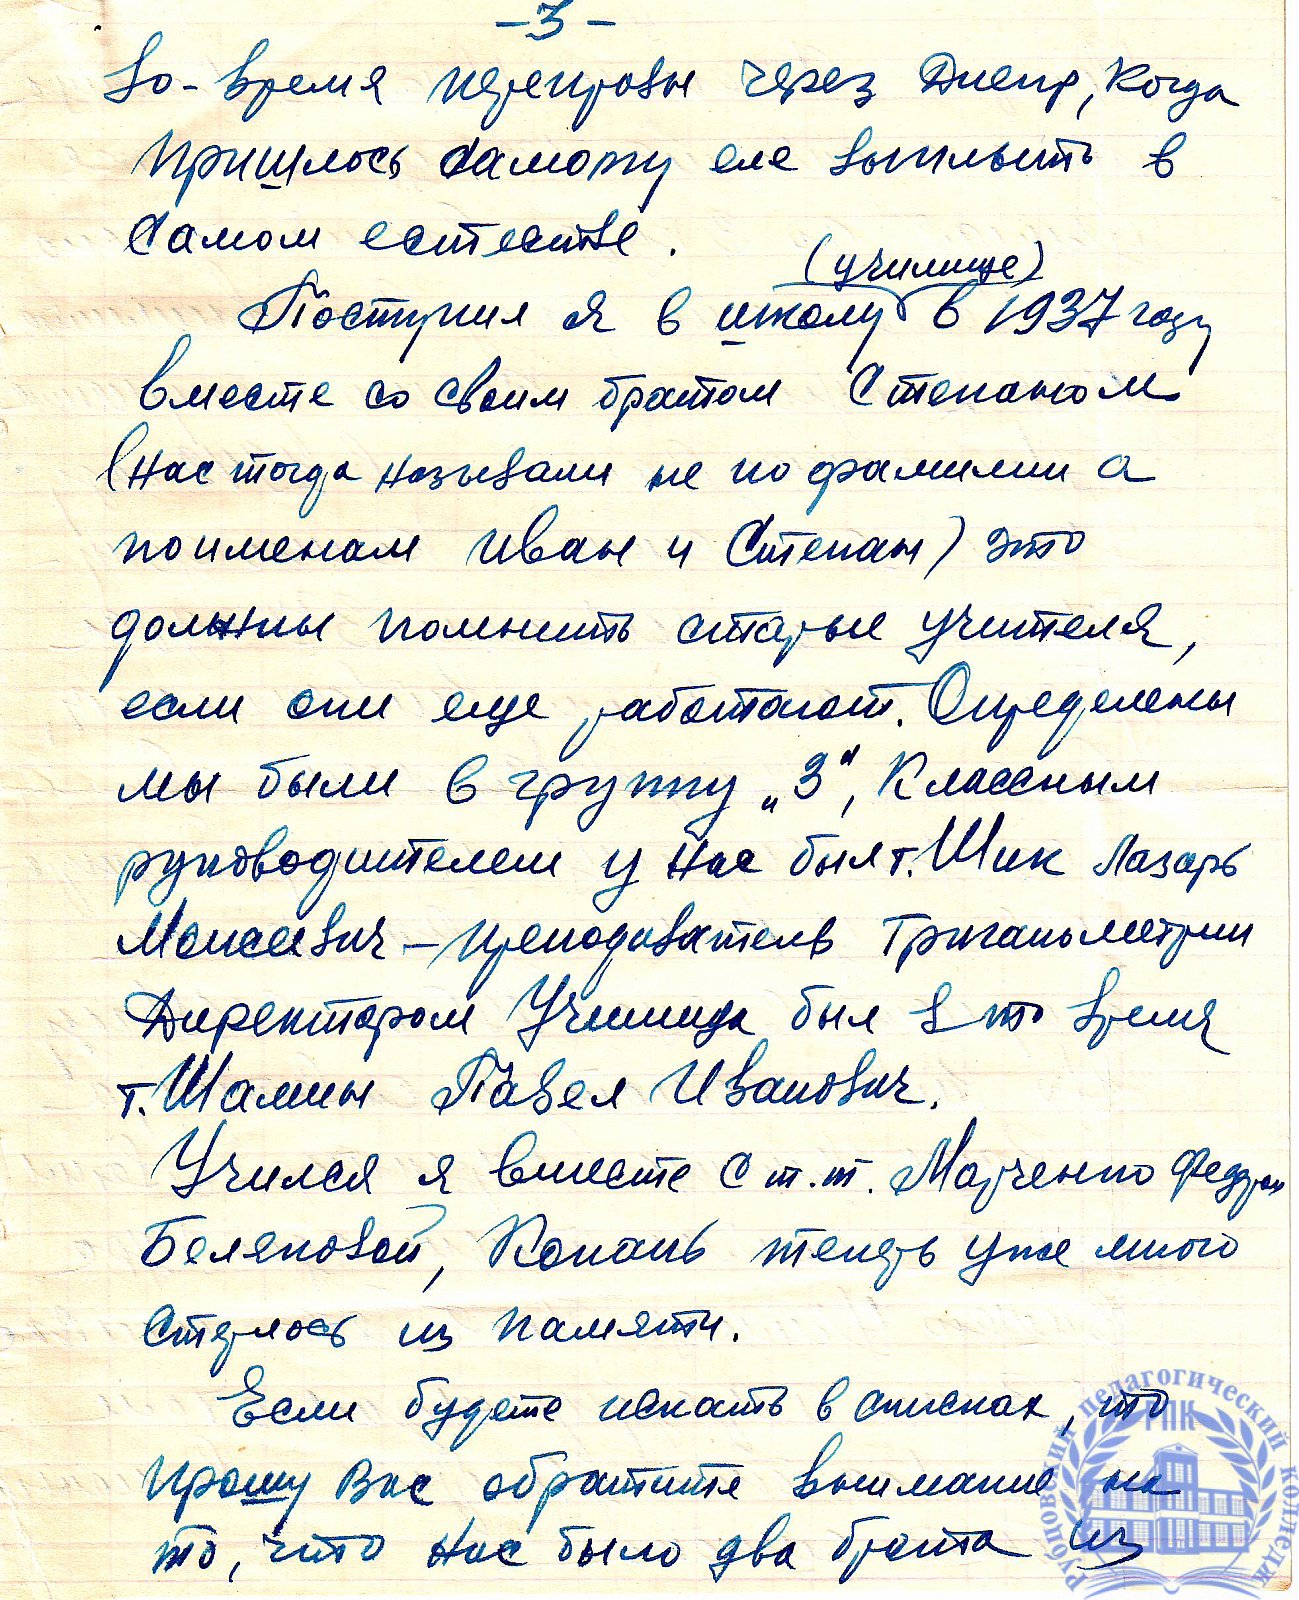 -3-
во-время переправы через Днепр, когда
пришлось самому еле выплыть в
самом естестве.
(училище)
Поступил я в школу в 1937 году
вместе со своим братом Степаном
(нас тогда называли не по фамилии а
по именам Иван и Степан) это
должны помнить старые учителя,
если они еще работают. Определены
мы были в группу „З“, Классным
руководителем у нас был т. Шик Лазарь
Моисеевич – преподаватель Тригонометрии
Директором Училища был в то время
т. Шамин Павел Иванович.
Учился я вместе с т.т. Марченко
Беляковой, Копань теперь уже много
стерлось из памяти.
Если будете искать в списках, то
прошу Вас обратите внимание на
то, что нас было два брата из
Рубцовский педагогический колледж
РПК